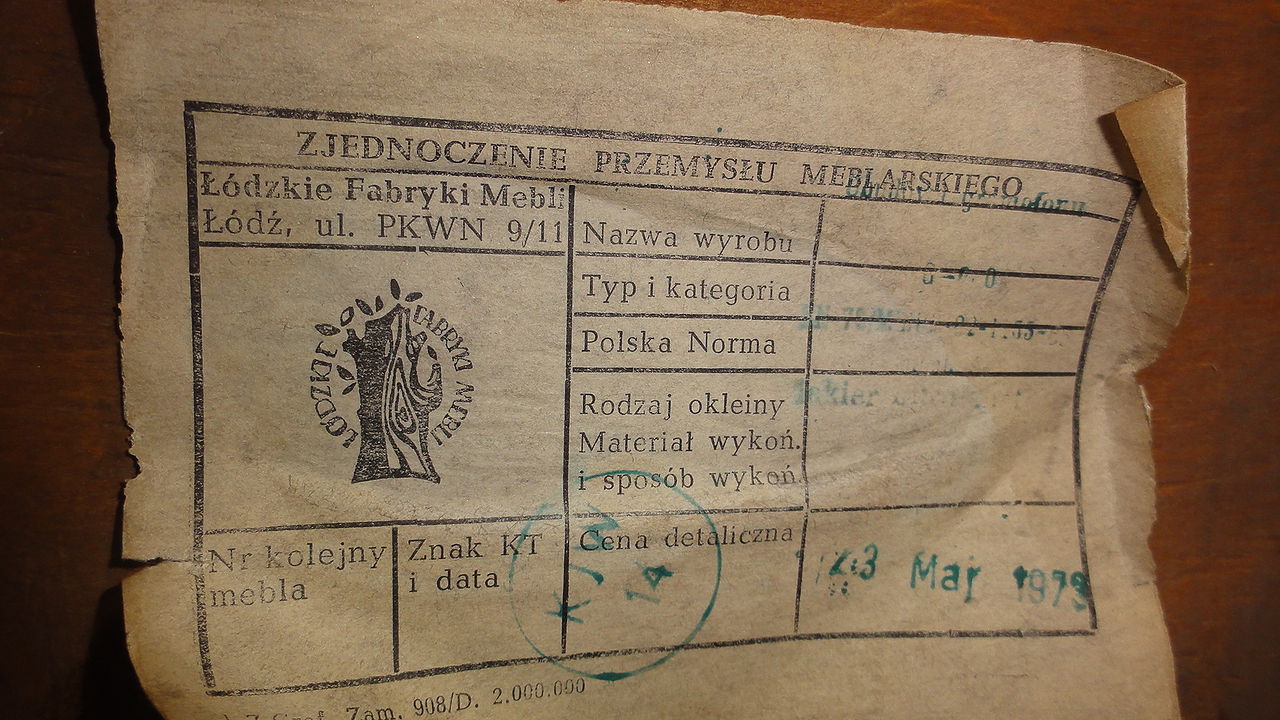 ZJEDNOCZENIE PRZEMYSŁU MEBLARSKIEGO
Łódzkie Fabryki Mebli
Łódź, ul. PKWN 9/11
ŁÓDZKIE FABRYKI MEBLI
Nazwa wyrobu
Typ i kategoria
Polska Norma
Rodzaj okleiny
Materiał wykoń.
i sposób wykoń.
Nr kolejny
mebla
Znak KT
i data
Cena detaliczna
KJW
14
23 Maj 1973
Zam. 908/D. 2.000.000